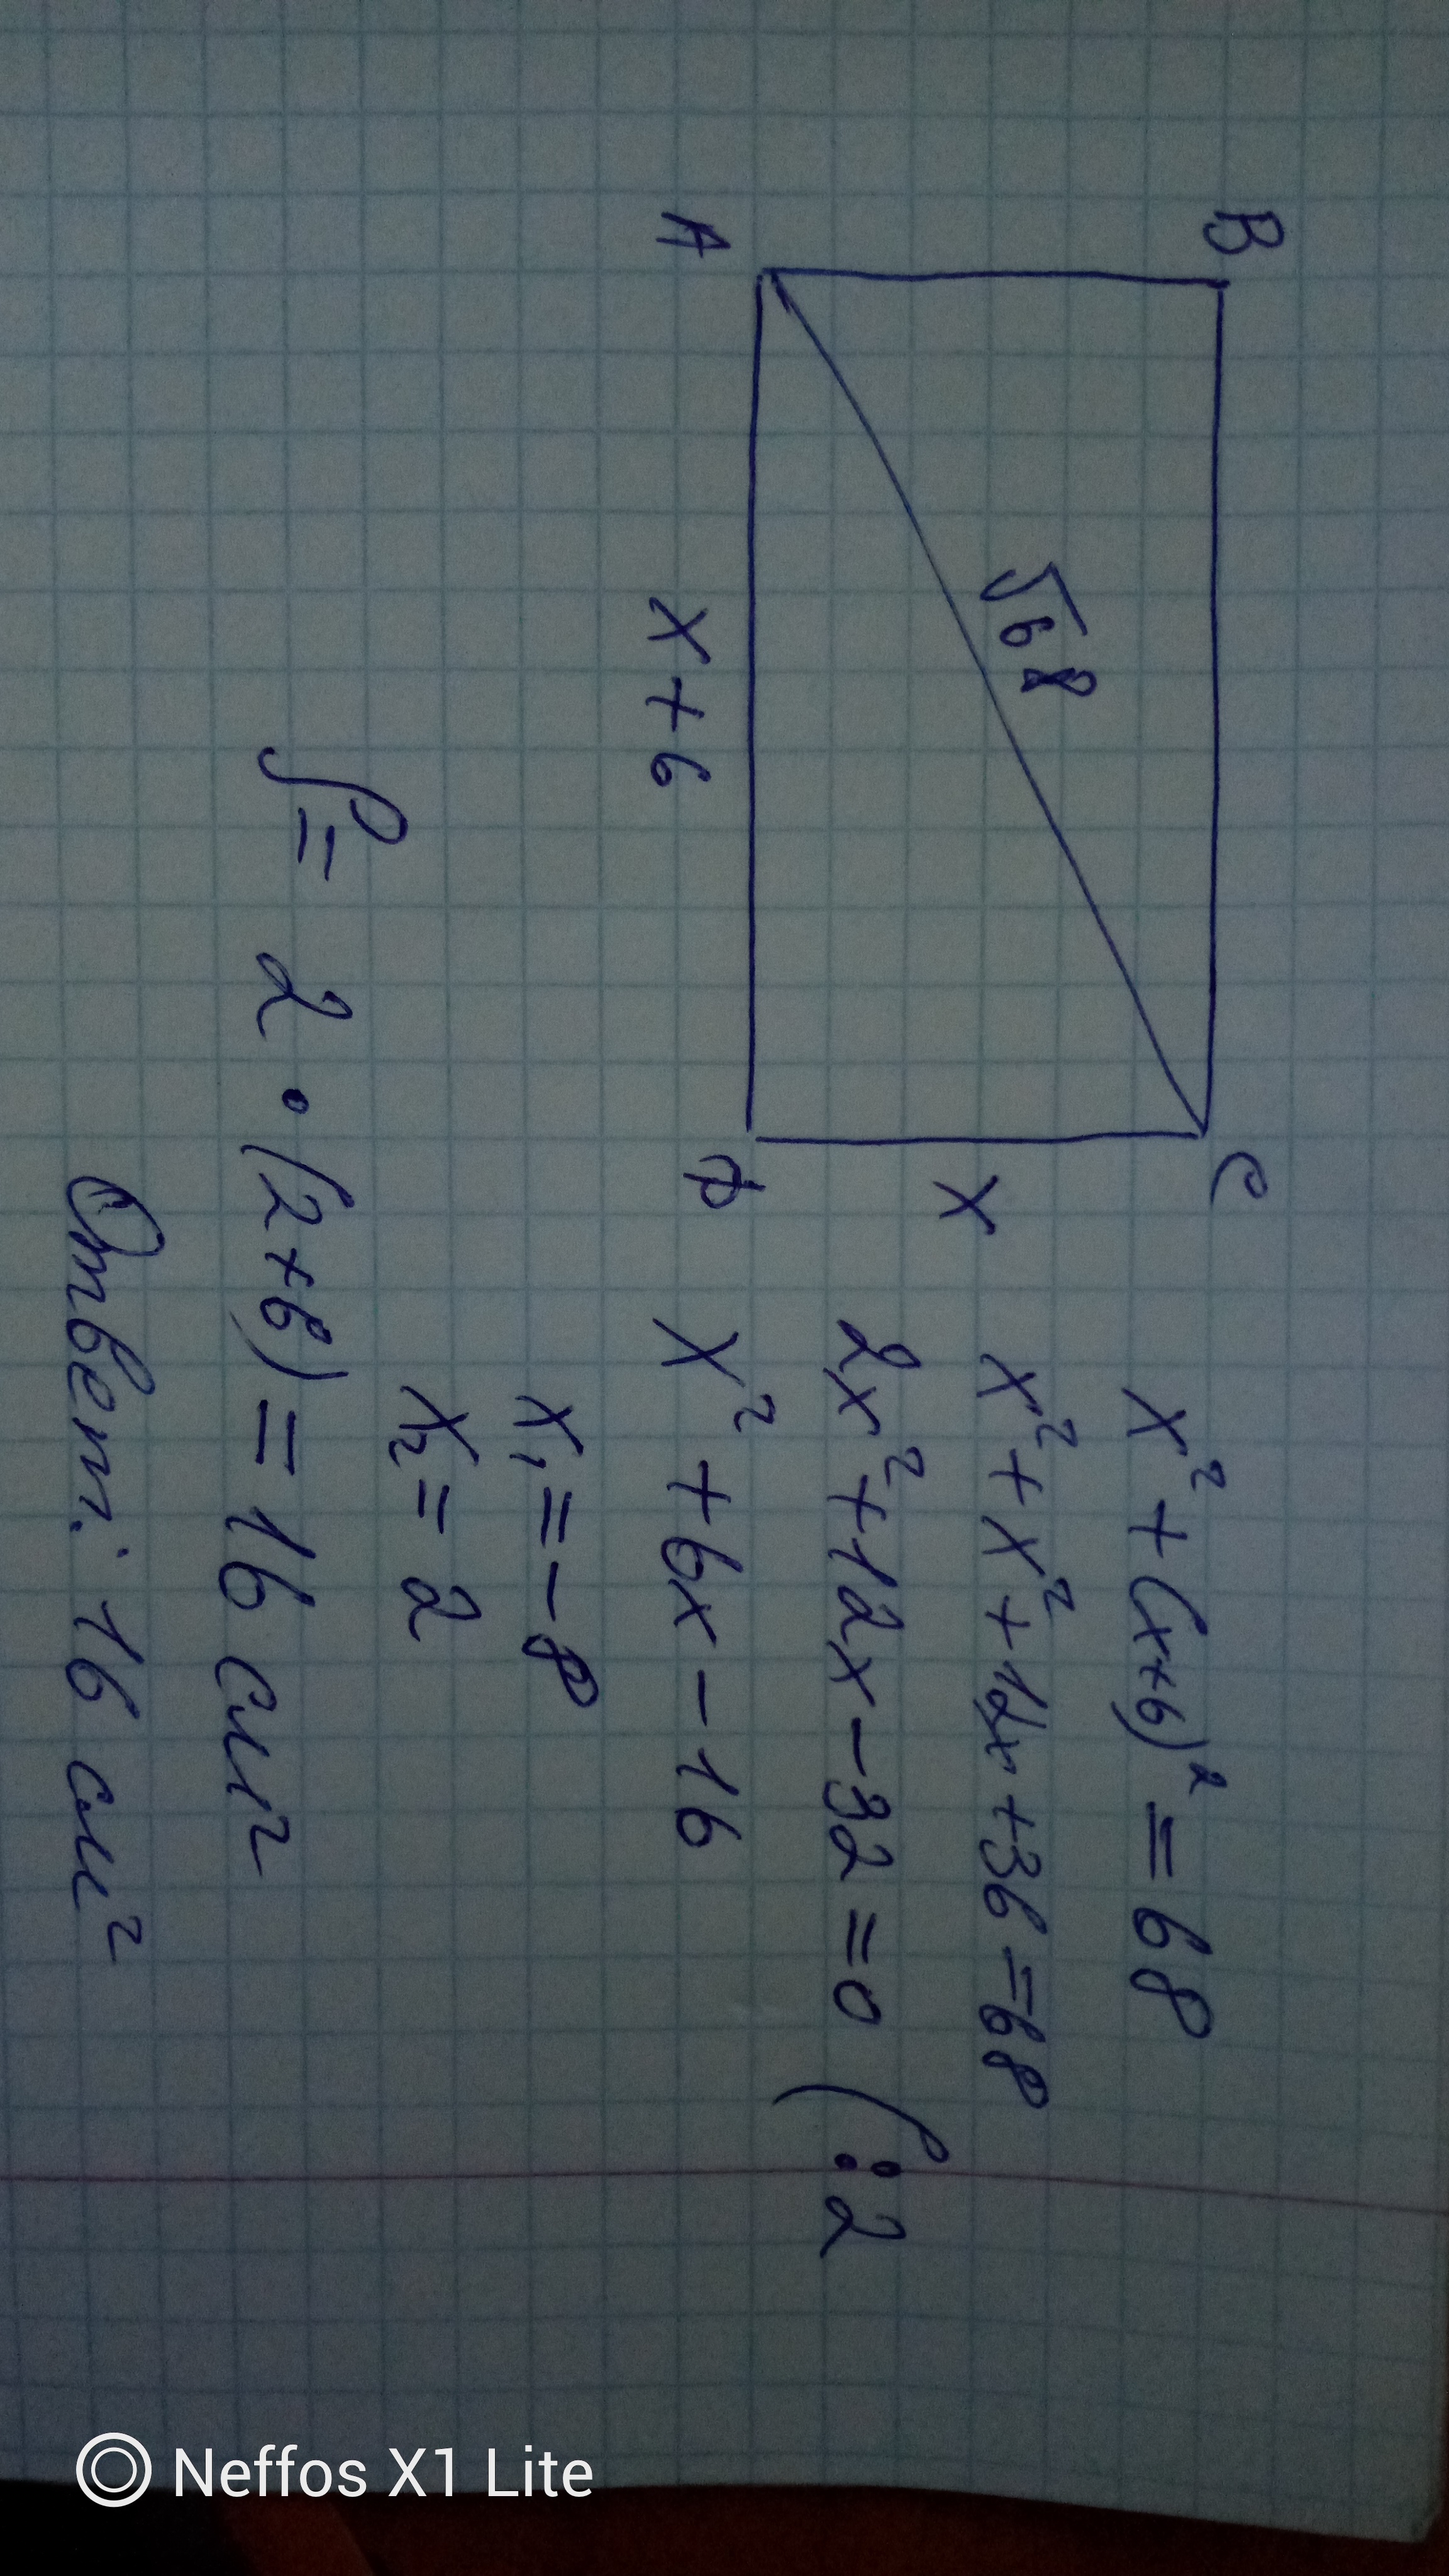 B
C
√68
x
A
x+6
D
x² + (x+6)² = 68
x² + x² + 12x + 36 = 68
2x² + 12x - 32 = 0 (:2
x² + 6x - 16
x₁ = -8
x₂ = 2
S= 2 · (2+6) = 16 см²
Ответ: 16 см²
Neffos X1 Lite